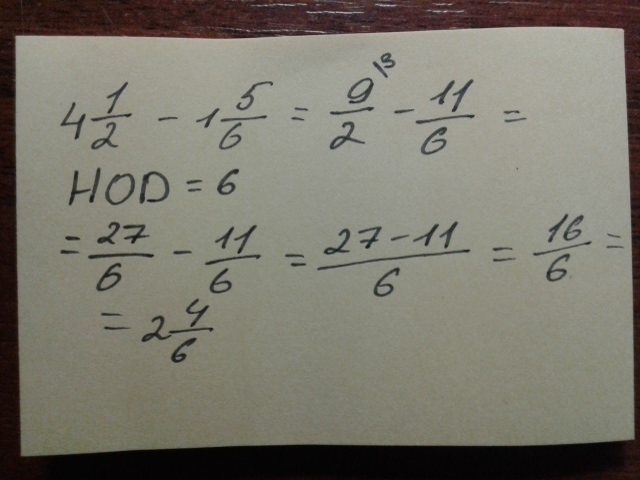 4 1/2 - 1 5/6 = 9/2 \3 - 11/6 =
HOD = 6
= 27/6 - 11/6 = 27-11/6 = 16/6 =
= 2 4/6